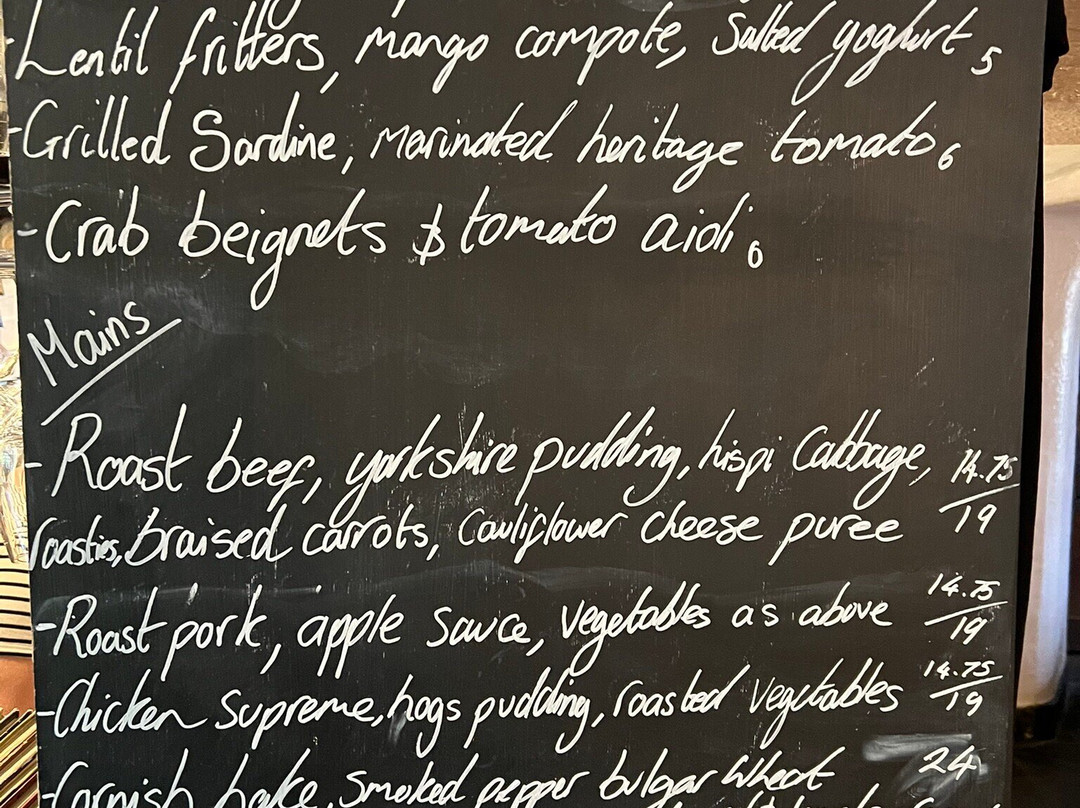 -Lentil fritters, mango compote, Salted yoghurt 5
-Grilled Sardine, marinated heritage tomato 6
-Crab beignets & tomato aioli 6
Mains
-Roast beef, yorkshire pudding, hispi Cabbage, 14.75/19
roasties, braised carrots, Cauliflower cheese puree
-Roast pork, apple sauce, vegetables as above 14.75/19
-Chicken Supreme, hogs pudding, roasted vegetables 14.75/19
-Cornish hake, smoked pepper bulgar wheat 24